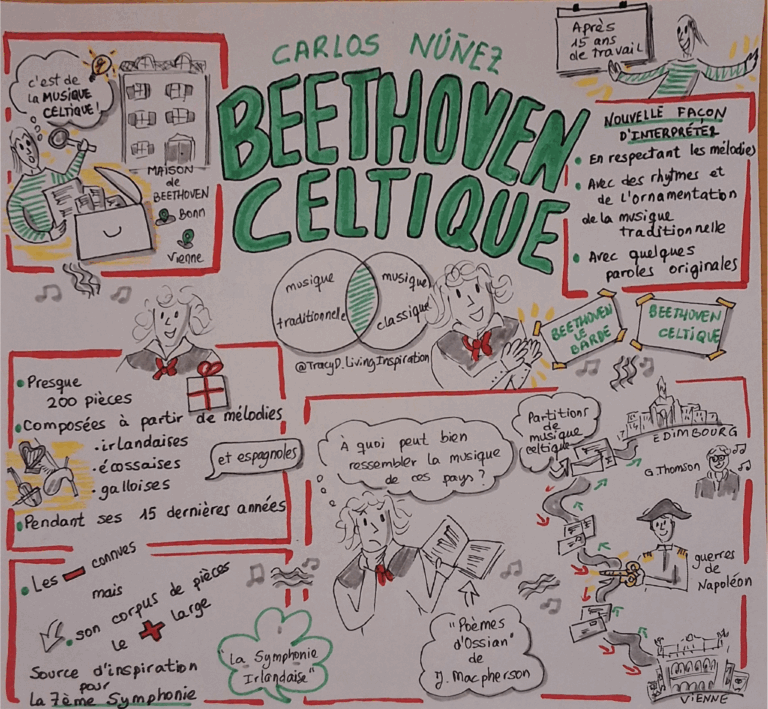 CARLOS NÚÑEZ
BEETHOVEN
CELTIQUE
c'est de
la MUSIQUE
CELTIQUE!
MAISON
de
BEETHOVEN
Bonn
Vienne
Après
15 ans
de travail
NOUVELLE FAÇON
D'INTERPRÉTER
• En respectant les mélodies
• Avec des rhytmes et
de l'ornamentation
de la musique
traditionnelle
• Avec quelques
paroles originales
musique
traditionnelle
musique
classique
@TracyD.LivingInspiration
BEETHOVEN
LE
BARDE
BEETHOVEN
CELTIQUE
• Presque
200 pièces
• Composées à partir de mélodies
• irlandaises
• écossaises
• galloises
et espagnoles
• Pendant ses 15 dernières années
• Les - connues
mais
• son corpus de pièces
le + large
Source d'inspiration
pour
la 7ème Symphonie
"La Symphonie
Irlandaise"
À quoi peut bien
ressembler la musique
de ces pays?
"Poèmes
d'Ossian"
de
J. Macpherson
Partitions
de
musique
celtique
EDIMBOURG
G. Thomson
guerres
de
Napoléon
VIENNE